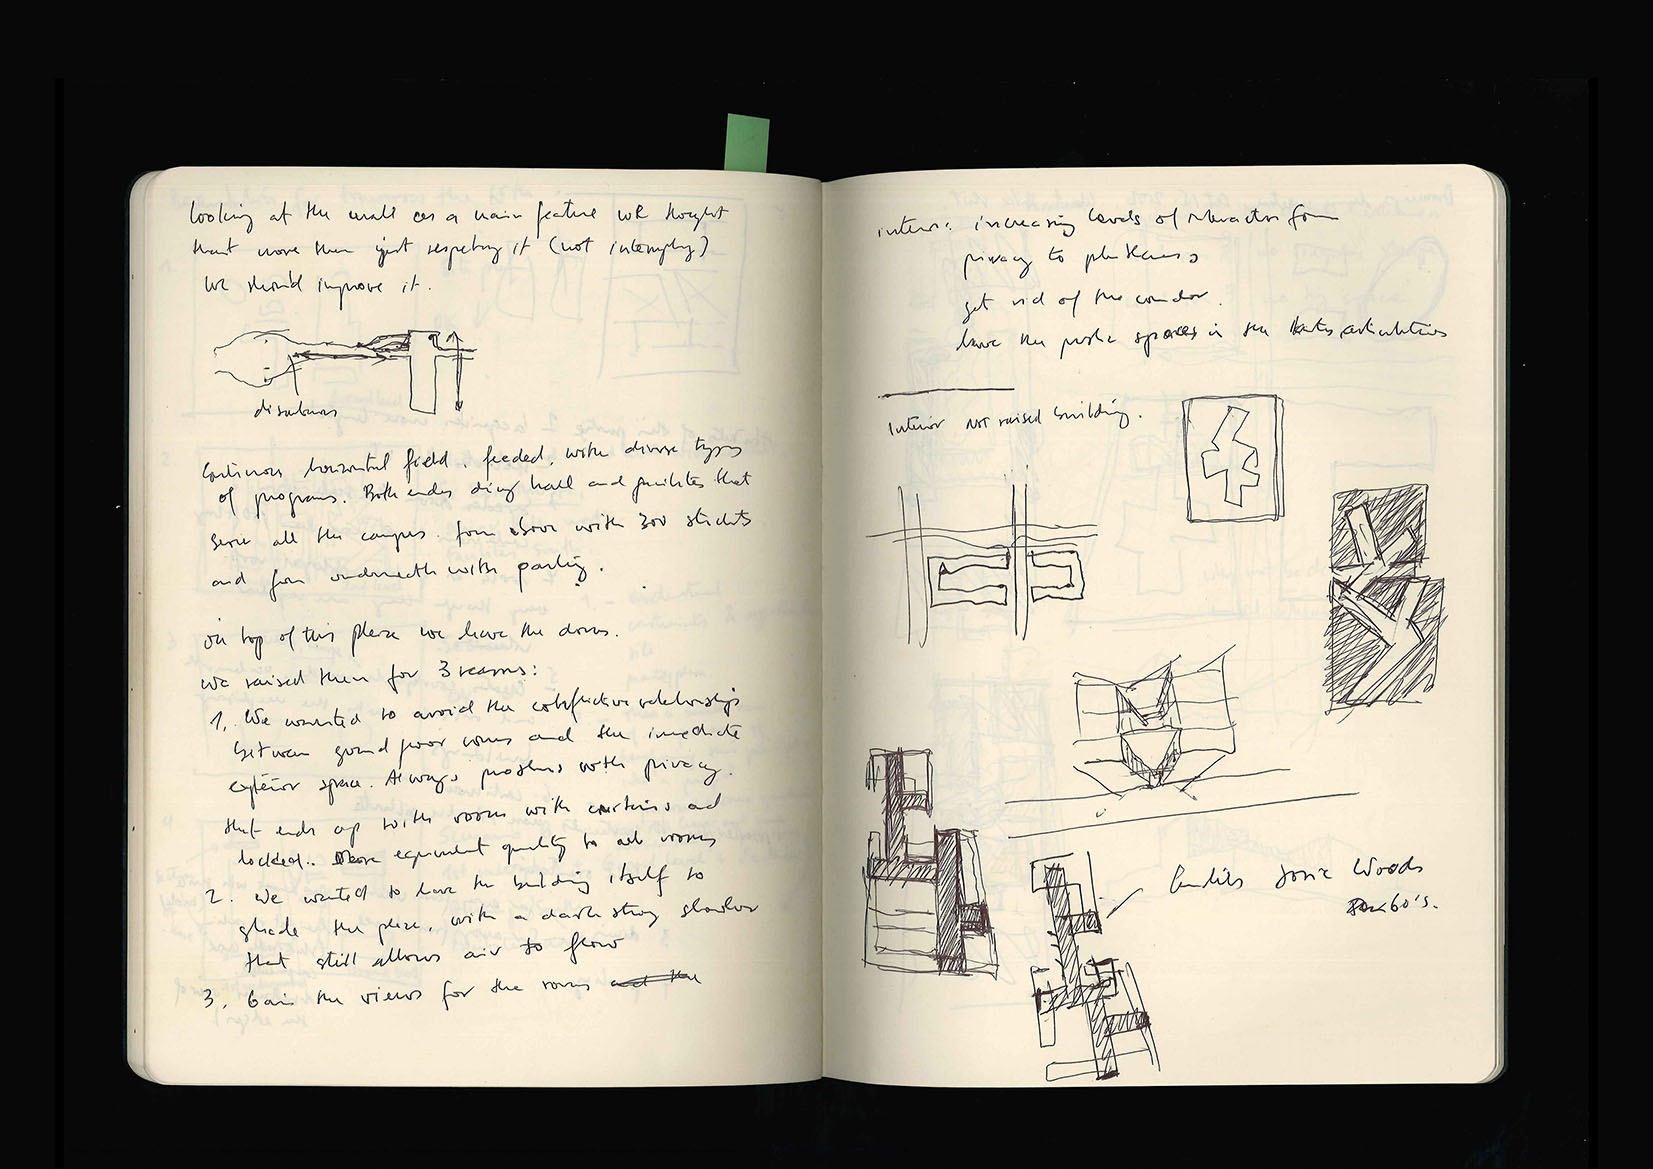 looking at the wall as a main feature we thought
that more than just respecting it (not interrupting)
we should improve it.
Continuous horizontal field, feeded, with diverse types
of programs. Both ends dining hall and facilities that
serve all the campus. from above with 300 students
and from underneath with parking.
on top of this we have the dorms.
we raised them for 3 reasons:
1. We wanted to avoid the relationships
between ground floor rooms and the imediate
exterior space. Always problems with privacy.
that ends up with rooms with curtains and
locked.. equivalent quality to all rooms
2. We wanted to have the building itself to
shade the, with a dark strong shadow
that still allows air to flow
3. Gain the views for the rooms and the
interior: increasing levels of interaction from
privacy to
get rid of the corridor.
have the public spaces in the articulations
Interior not raised building.
Candilis Josic Woods
60's.